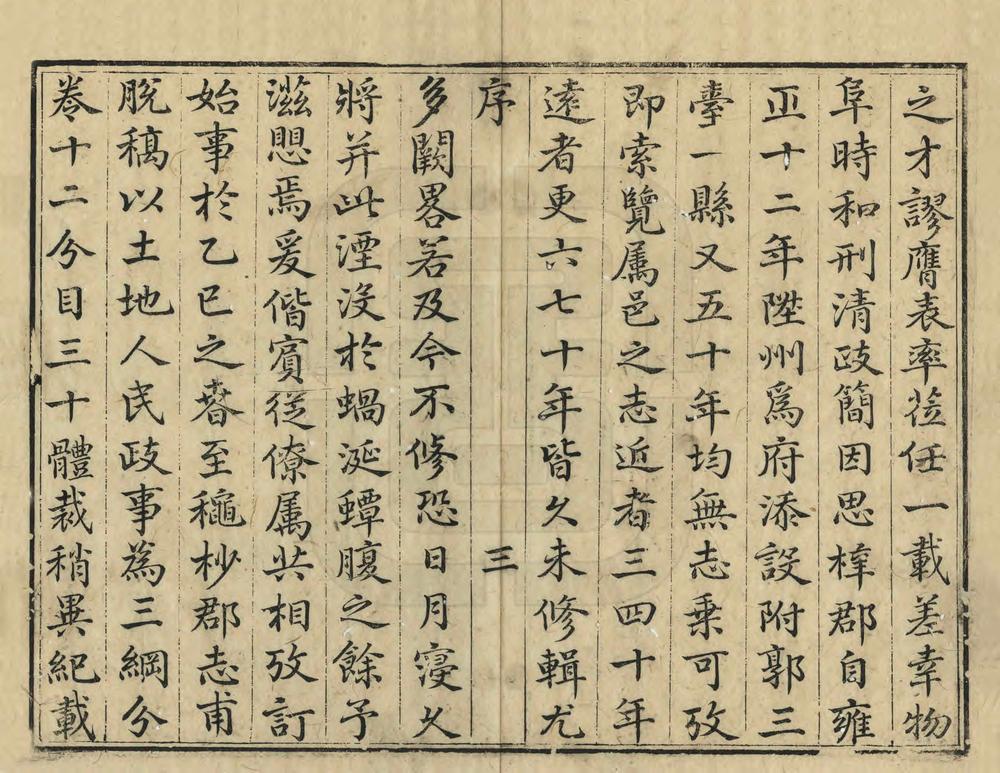 之才謬膺表率蒞任一載差幸物
阜時和刑清政簡因思梓郡自雍
正十二年陞州爲府添設附郭三
臺一縣又五十年均無志乗可攷
即索覽属邑之志近者三四十年
遠者更六七十年皆久未修輯尤
序 三
多闕畧若及今不修恐日月寖久
將并此湮沒於蝸涎蟫腹之餘予
滋愳焉爰偕賓從僚属共相攷訂
始事於乙巳之春至秋杪郡志甫
脫稿以土地人民政事為三綱分
卷十二分目三十體裁稍異紀載